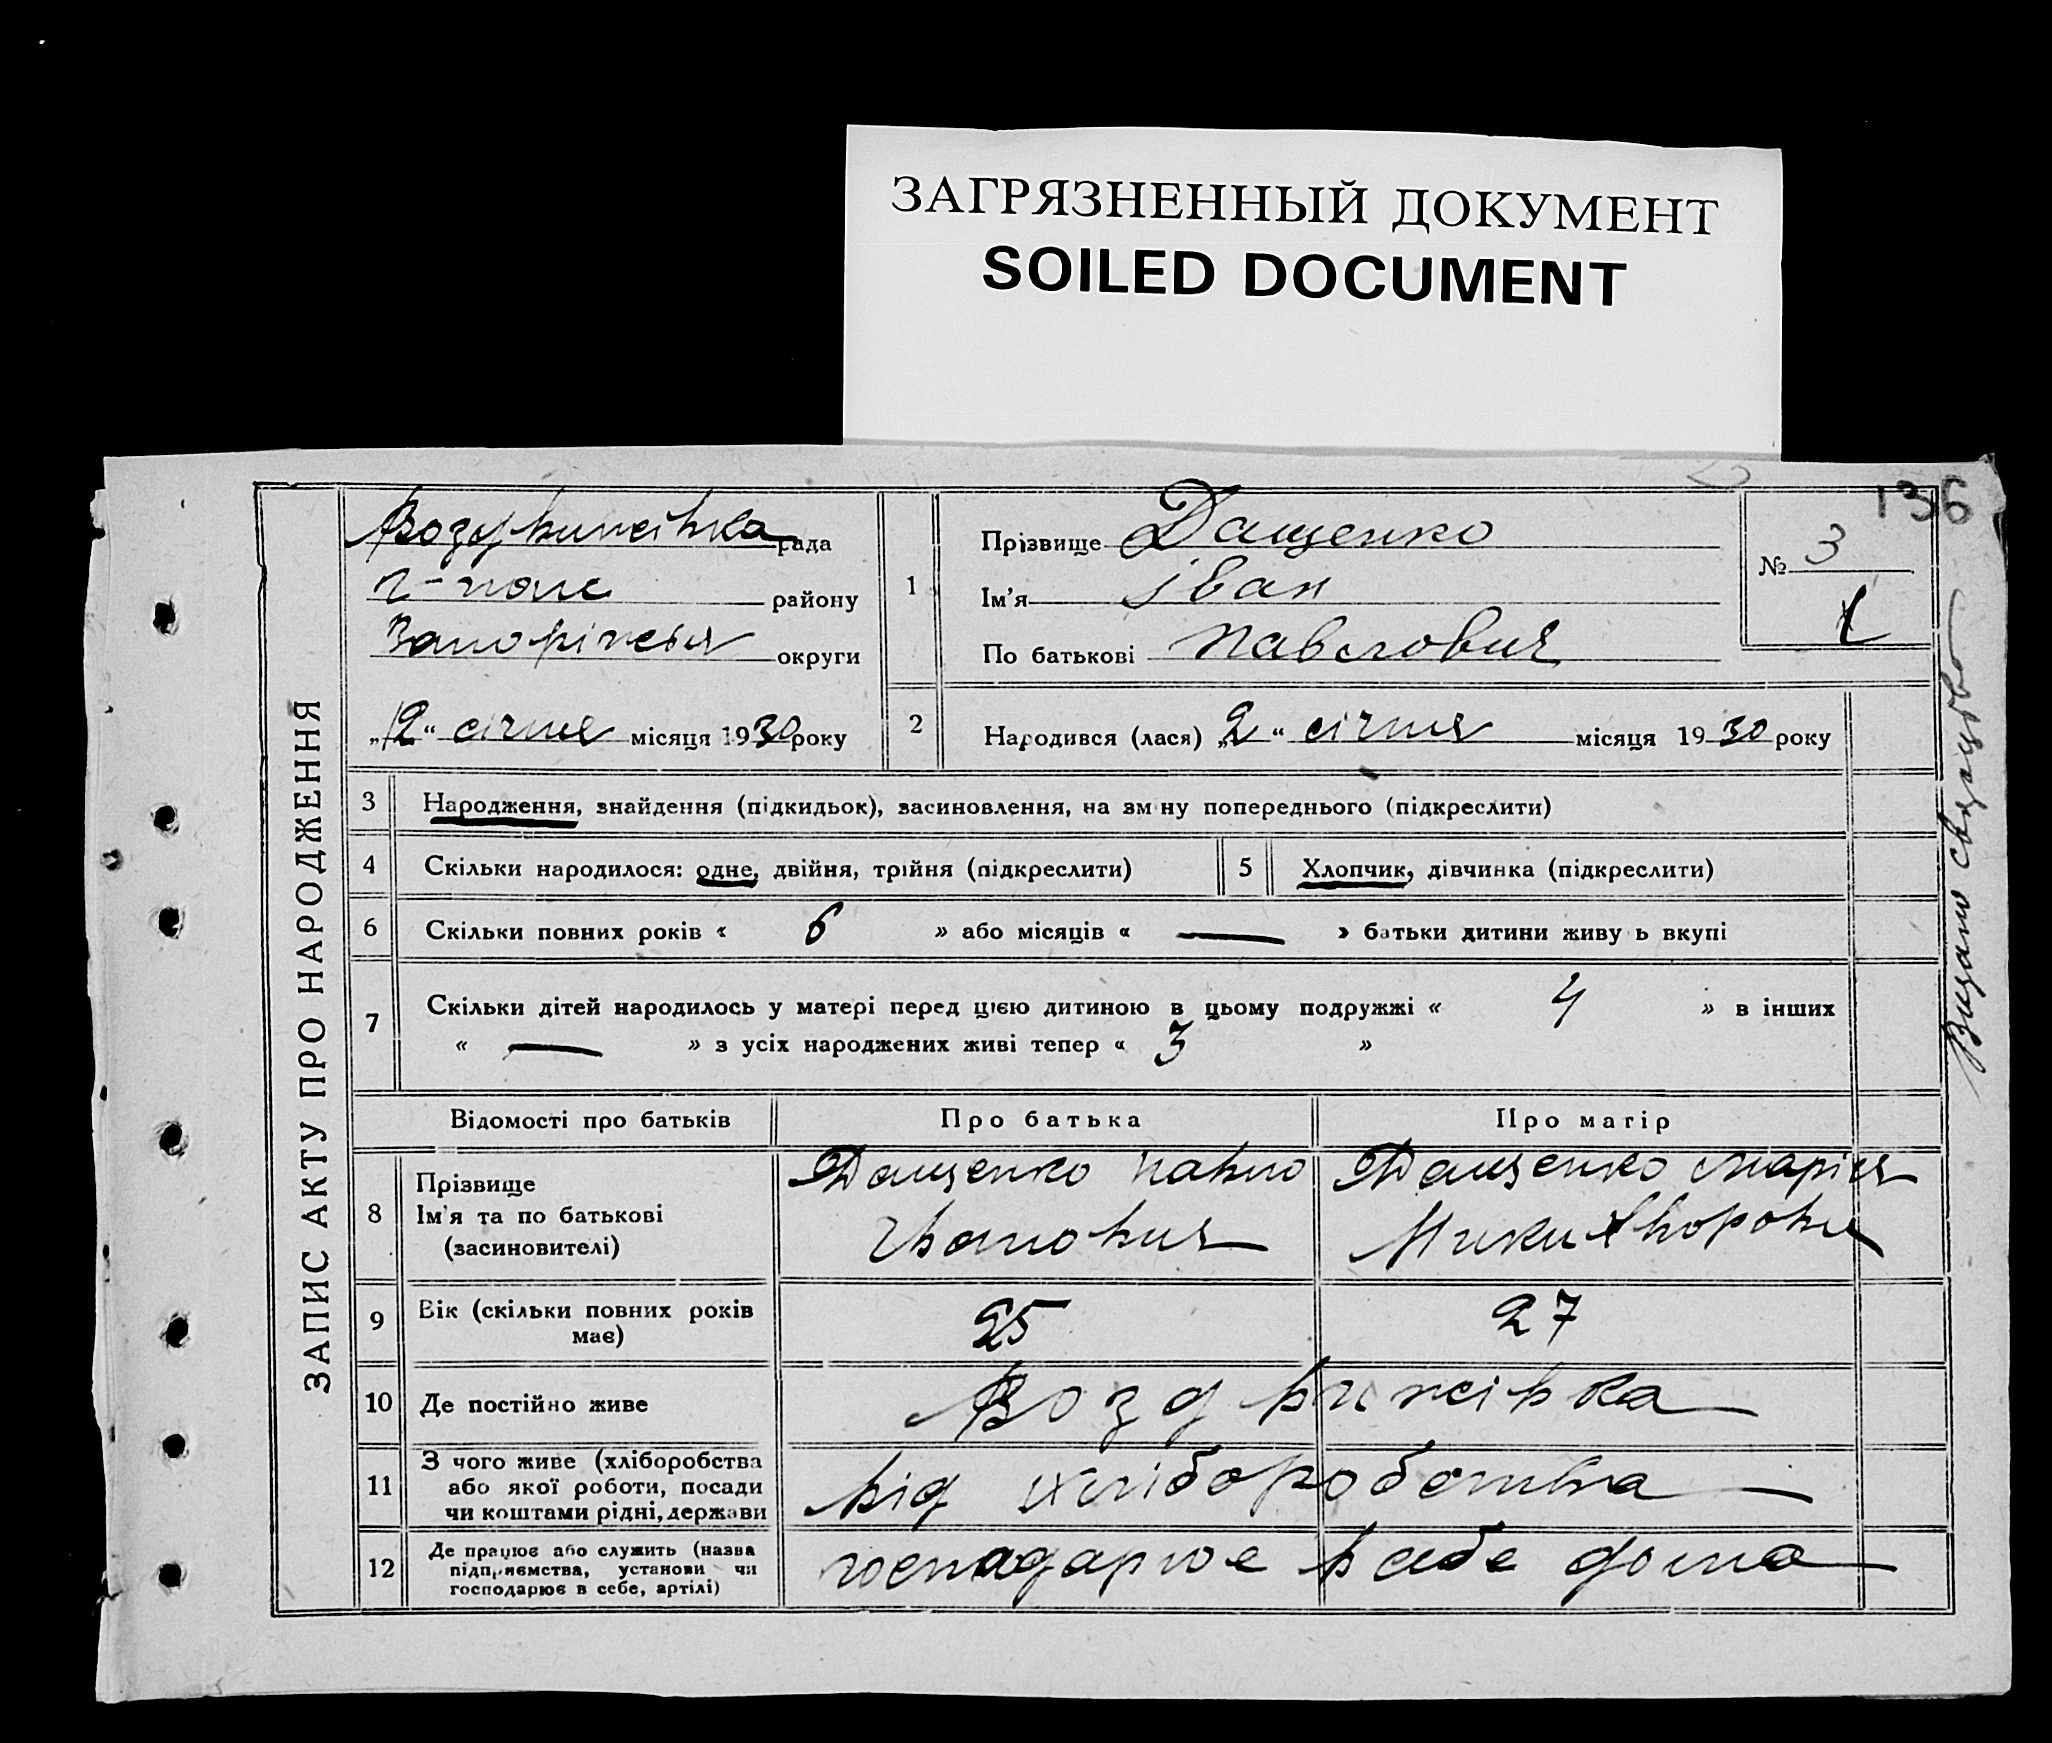 ЗАГРЯЗНЕННЫЙ ДОКУМЕНТ
SOILED DOCUMENT
136
ЗАПИС АКТУ ПРО НАРОДЖЕННЯ
Воздвижівка рада
г-поле району
Запоріжжя округи
„12“ січня місяця 1930 року
1
Прізвище Дащенко
Ім'я іван
По батькові Павлович
№ 3
2
Народився (лася) „2“ січня місяця 1930 року
3 Народження, знайдення (підкидьок), засиновлення, на зміну попереднього (підкреслити)
4 Скільки народилося: одне, двійня, трійня (підкреслити)
5 Хлопчик, дівчинка (підкреслити)
6 Скільки повних років « 6 » або місяців « — » батьки дитини живу ь вкупі
7 Скільки дітей народилось у матері перед цією дитиною в цьому подружжі « 4 » в інших
« — » з усіх народжених живі тепер « 3 »
Відомості про батьків Про батька Про матір
8 Прізвище
Ім'я та по батькові
(засиновителі)
Дащенко Павло
Іванович
Дащенко Марія
Никифоровн
9 Вік (скільки повних років
має)
25 27
10 Де постійно живе Воздвижівка
11 З чого живе (хліборобства
або якої роботи, посади
чи коштами рідні, держави
від хліборобства
12 Де працює або служить (назва
підприємства, установи чи
господарює в себе, артілі)
господарює в себе дома
Видано свідоцтво